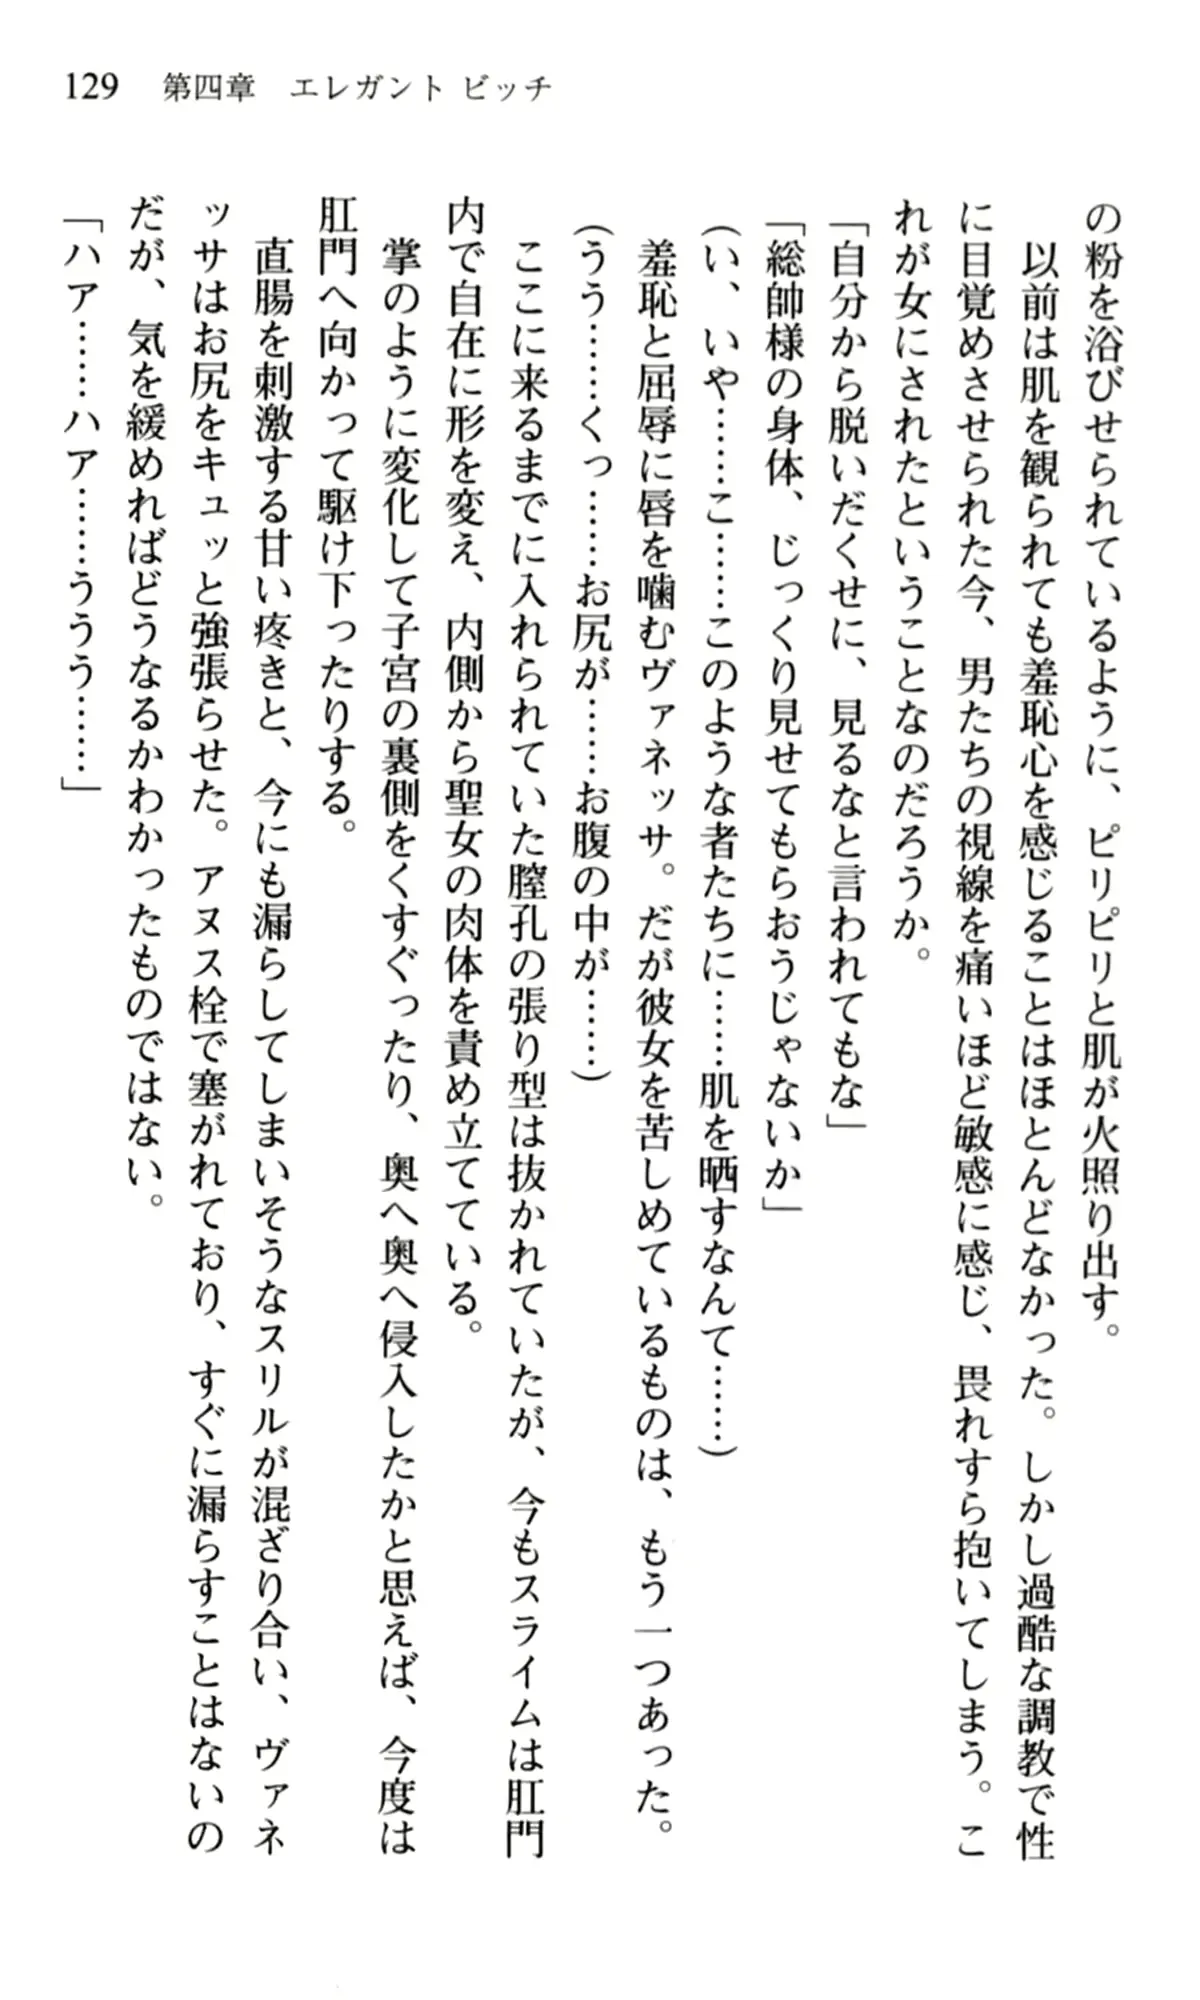 129　第四章　エレガント ビッチ
の粉を浴びせられているように、ピリピリと肌が火照り出す。
以前は肌を観られても羞恥心を感じることはほとんどなかった。しかし過酷な調教で性
に目覚めさせられた今、男たちの視線を痛いほど敏感に感じ、畏れすら抱いてしまう。こ
れが女にされたということなのだろうか。
「自分から脱いだくせに、見るなと言われてもな」
「総帥様の身体、じっくり見せてもらおうじゃないか」
(い、いや……こ……このような者たちに……肌を晒すなんて……)
羞恥と屈辱に唇を噛むヴァネッサ。だが彼女を苦しめているものは、もう一つあった。
(うう……くっ……お尻が……お腹の中が……)
ここに来るまでに入れられていた膣孔の張り型は抜かれていたが、今もスライムは肛門
内で自在に形を変え、内側から聖女の肉体を責め立てている。
掌のように変化して子宮の裏側をくすぐったり、奥へ奥へ侵入したかと思えば、今度は
肛門へ向かって駆け下ったりする。
直腸を刺激する甘い疼きと、今にも漏らしてしまいそうなスリルが混ざり合い、ヴァネ
ッサはお尻をキュッと強張らせた。アヌス栓で塞がれており、すぐに漏らすことはないの
だが、気を緩めればどうなるかわかったものではない。
「ハア……ハア……ううう……」